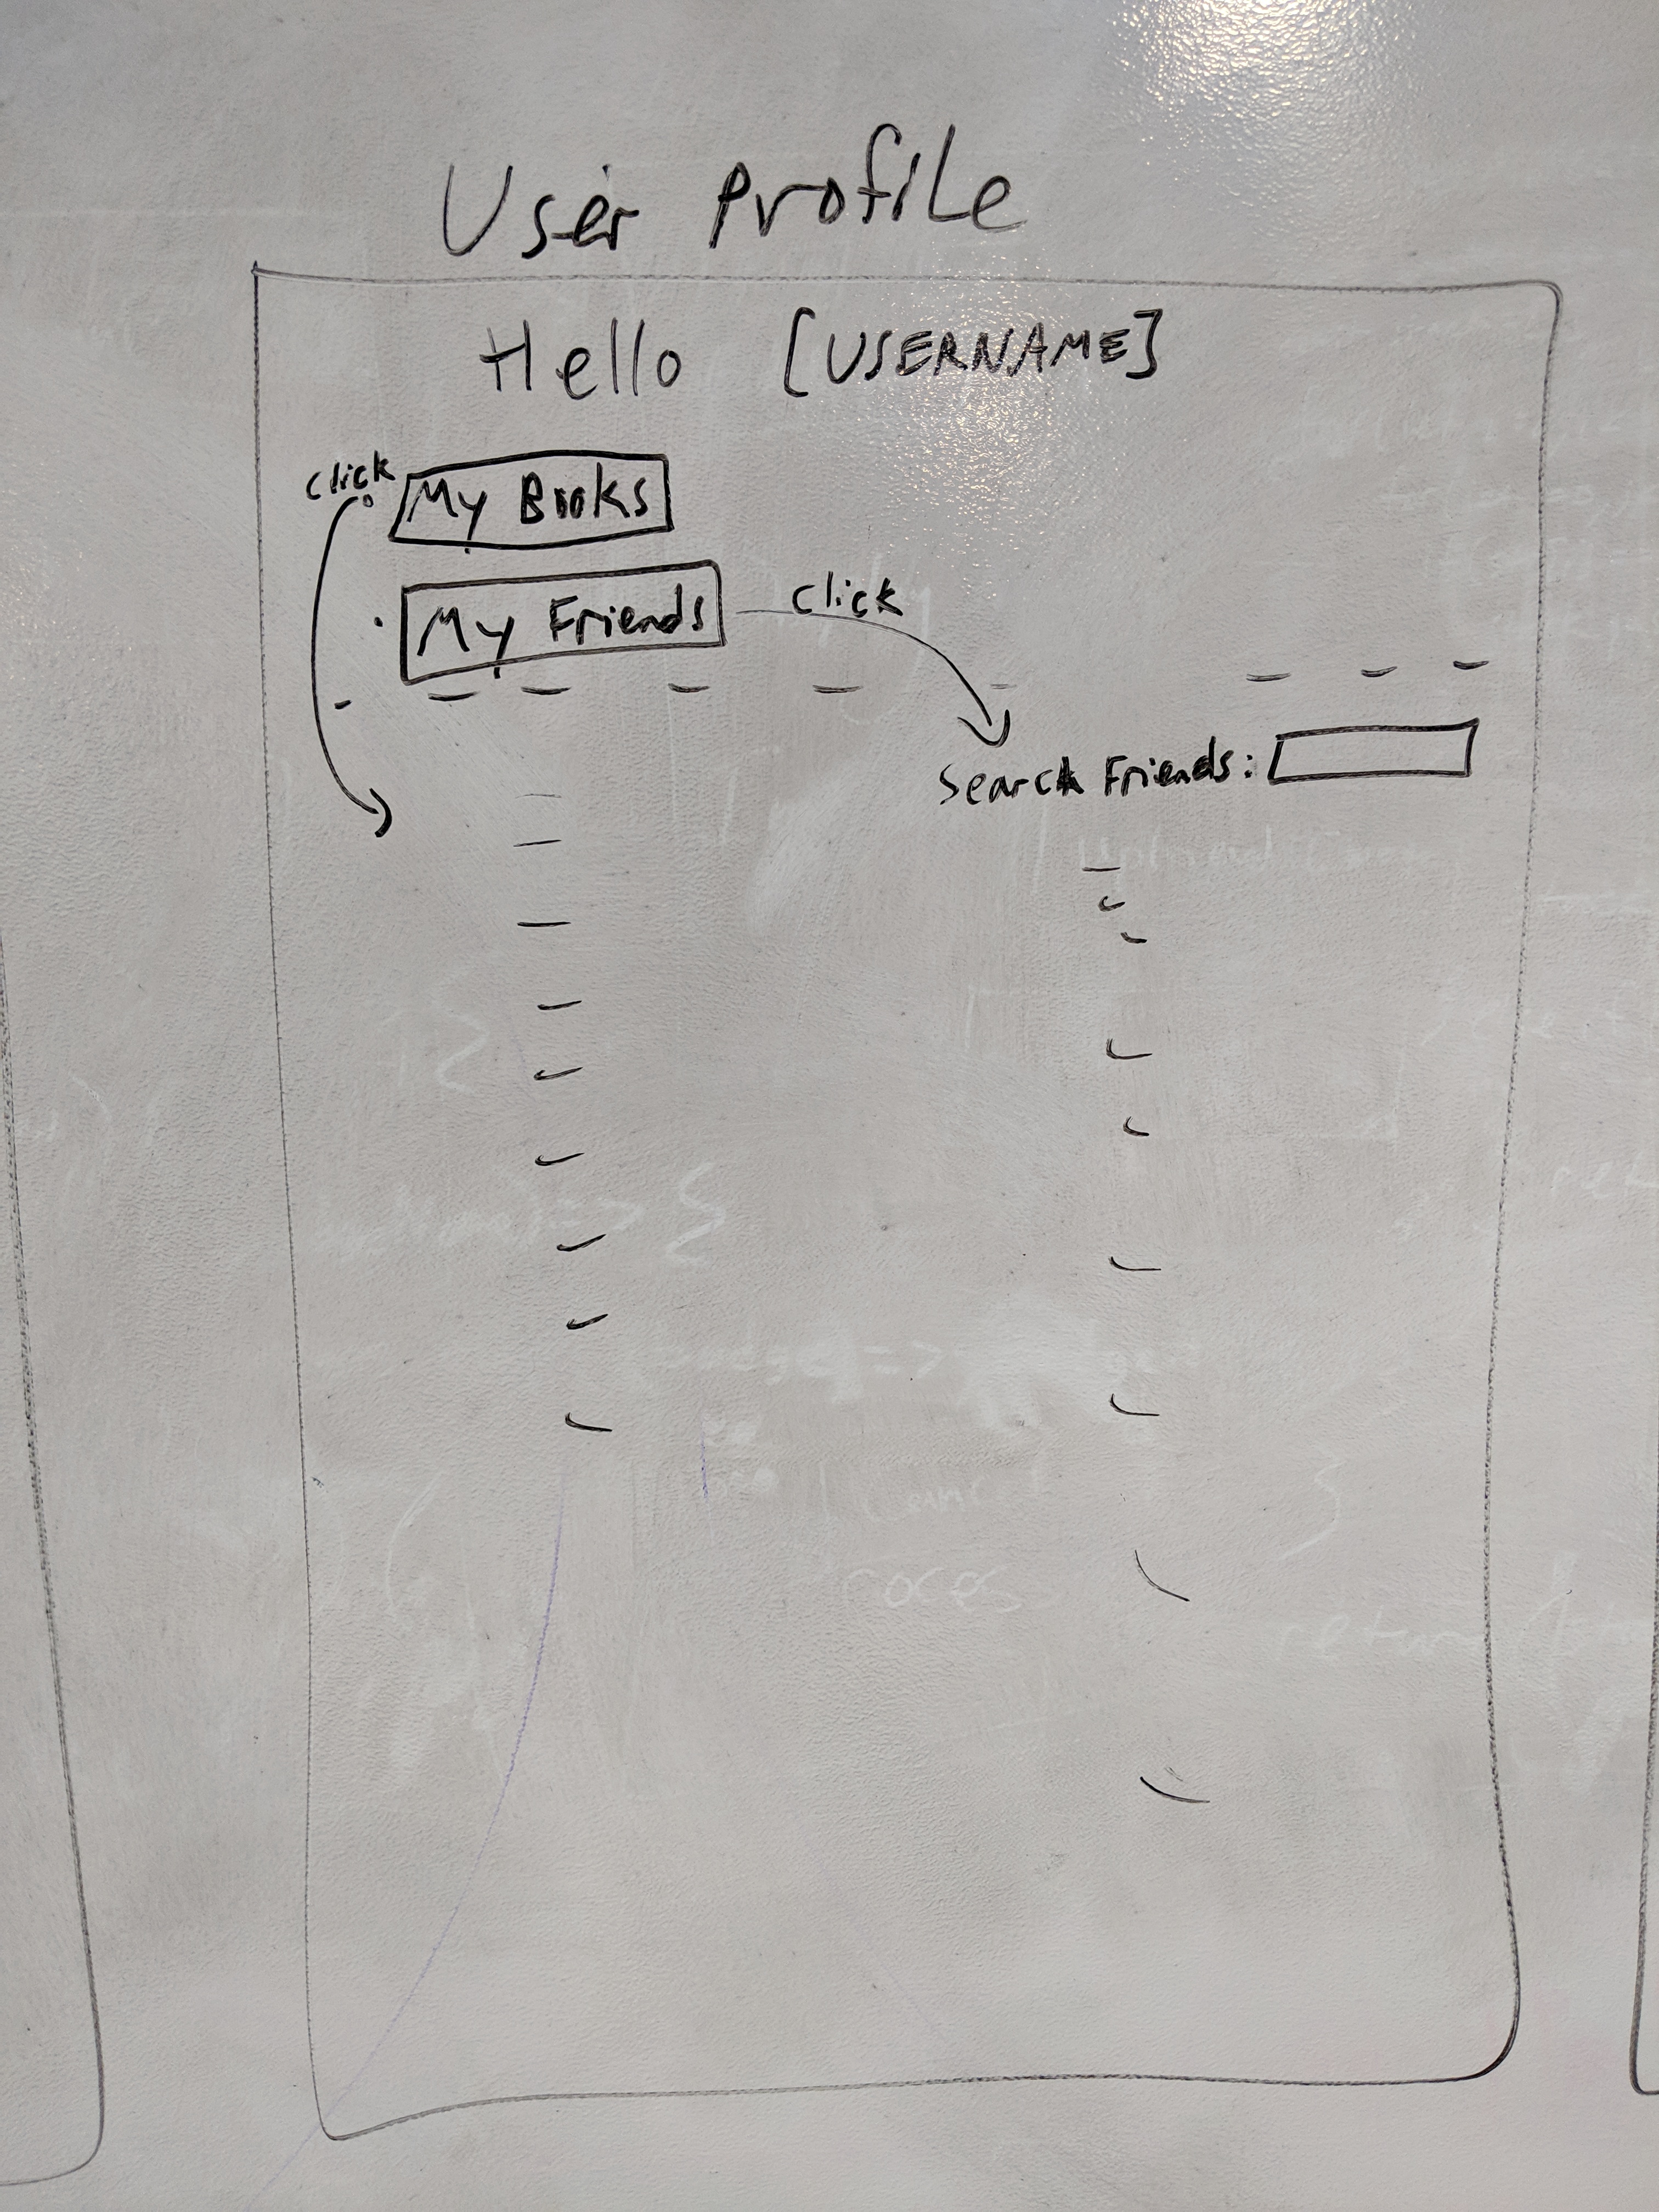 User Profile
Hello [USERNAME]
click
My Books
My Friends
click
Search Friends:
roces
return